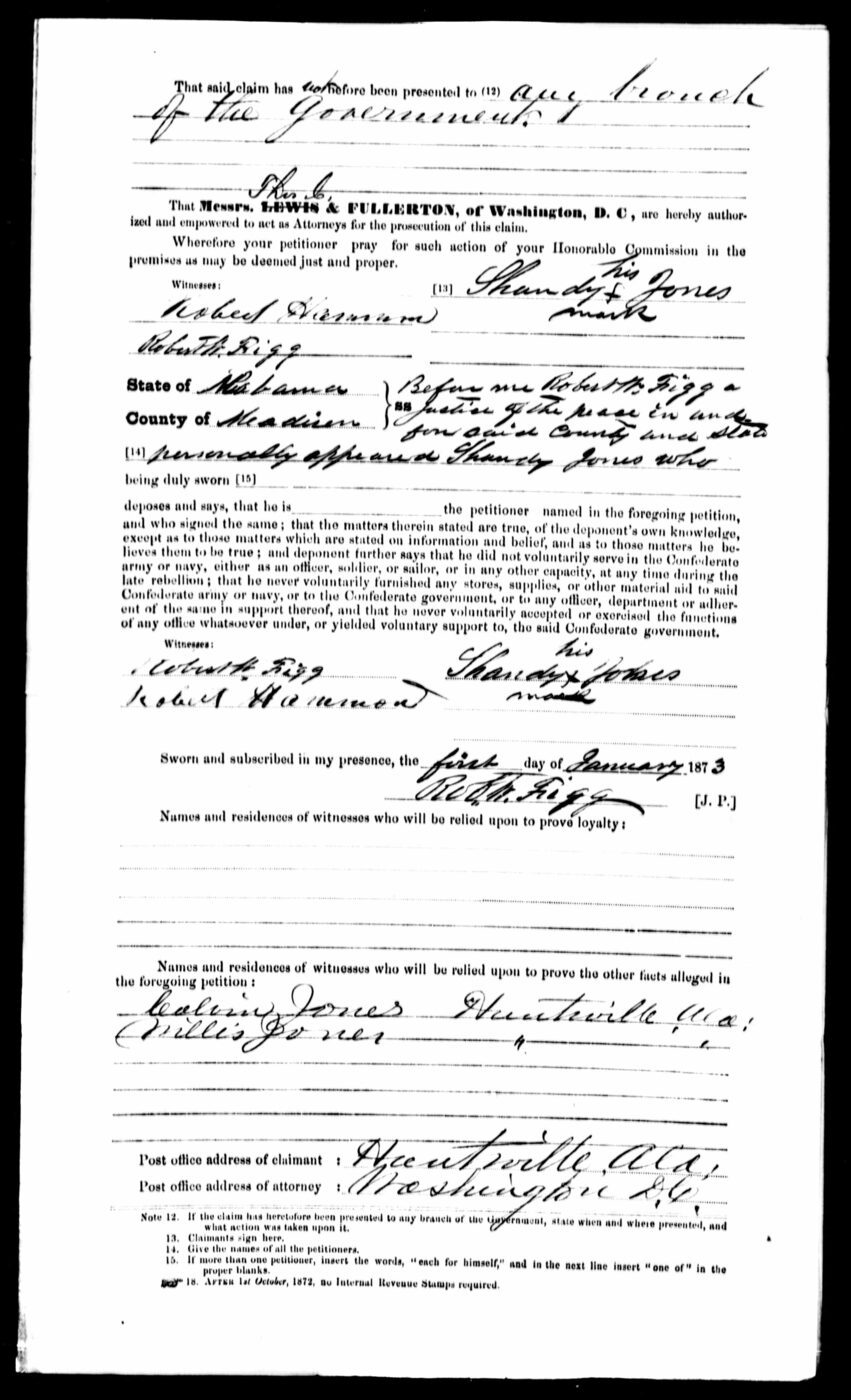 That said claim has not before been presented to (12) any branch
of the Government.
Thos C.
That Messrs. LEWIS & FULLERTON, of Washington, D. C, are hereby author-
ized and empowered to act as Attorneys for the prosecution of this claim.
Wherefore your petitioner pray for such action of your Honorable Commission in the
premises as may be deemed just and proper.
Witnesses: [13] Shandy his x mark Jones
Robert
Robert W. Figg
State of Alabama } ss Before me Robert W. Figg a
County of Madison Justice of the peace in and
for said County and State
[14] personally appeared Shandy Jones who
being duly sworn [15]
deposes and says, that he is the petitioner named in the foregoing petition,
and who signed the same; that the matters therein stated are true, of the deponent's own knowledge,
except as to those matters which are stated on information and belief, and as to those matters he be-
lieves them to be true; and deponent further says that he did not voluntarily serve in the Confederate
army or navy, either as an officer, soldier, or sailor, or in any other capacity, at any time during the
late rebellion; that he never voluntarily furnished any stores, supplies, or other material aid to said
Confederate army or navy, or to the Confederate government, or to any officer, department or adher-
ent of the same in support thereof, and that he never voluntarily accepted or exercised the functions
of any office whatsoever under, or yielded voluntary support to, the said Confederate government.
Witnesses:
Robert W. Figg Shandy his x mark Jones
Robert Hammond
Sworn and subscribed in my presence, the first day of January 1873
Robt. W. Figg [J. P.]
Names and residences of witnesses who will be relied upon to prove loyalty:
Names and residences of witnesses who will be relied upon to prove the other facts alleged in
the foregoing petition:
Calvin Jones Huntsville Ala.
Willis Jones " "
Post office address of claimant : Huntsville Ala.
Post office address of attorney : Washington D.C.
Note 12. If the claim has heretofore been presented to any branch of the Government, state when and where presented, and
what action was taken upon it.
13. Claimants sign here.
14. Give the names of all the petitioners.
15. If more than one petitioner, insert the words, "each for himself," and in the next line insert "one of" in the
proper blanks.
18. AFTER 1st October, 1872, no Internal Revenue Stamps required.